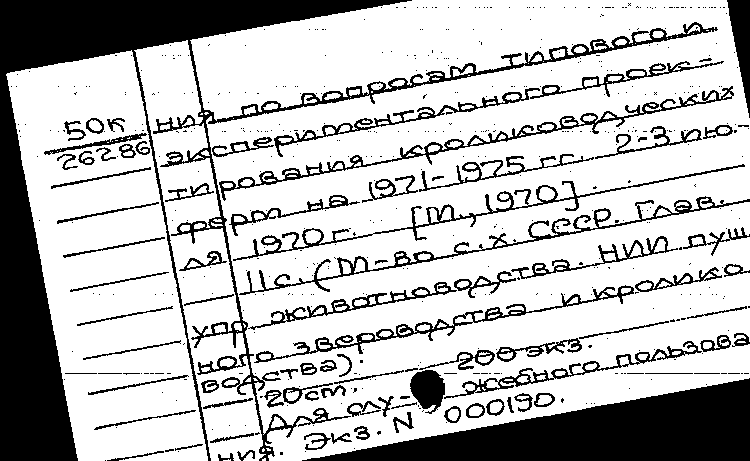 50к
26286
ния по вопросам типового и
экспериментального проек-
тирования кролиководческих
ферм на 1971-1975 гг. 2-3 ию-
ля 1970 г. [М., 1970].
11 с. (М-во с.х. СССР. Глав.
упр. животноводства. НИИ пуш
ного звероводства и кролико
водства).
20см. 200 экз.
Для слу-жебного пользова
ния. Экз. N 000190.